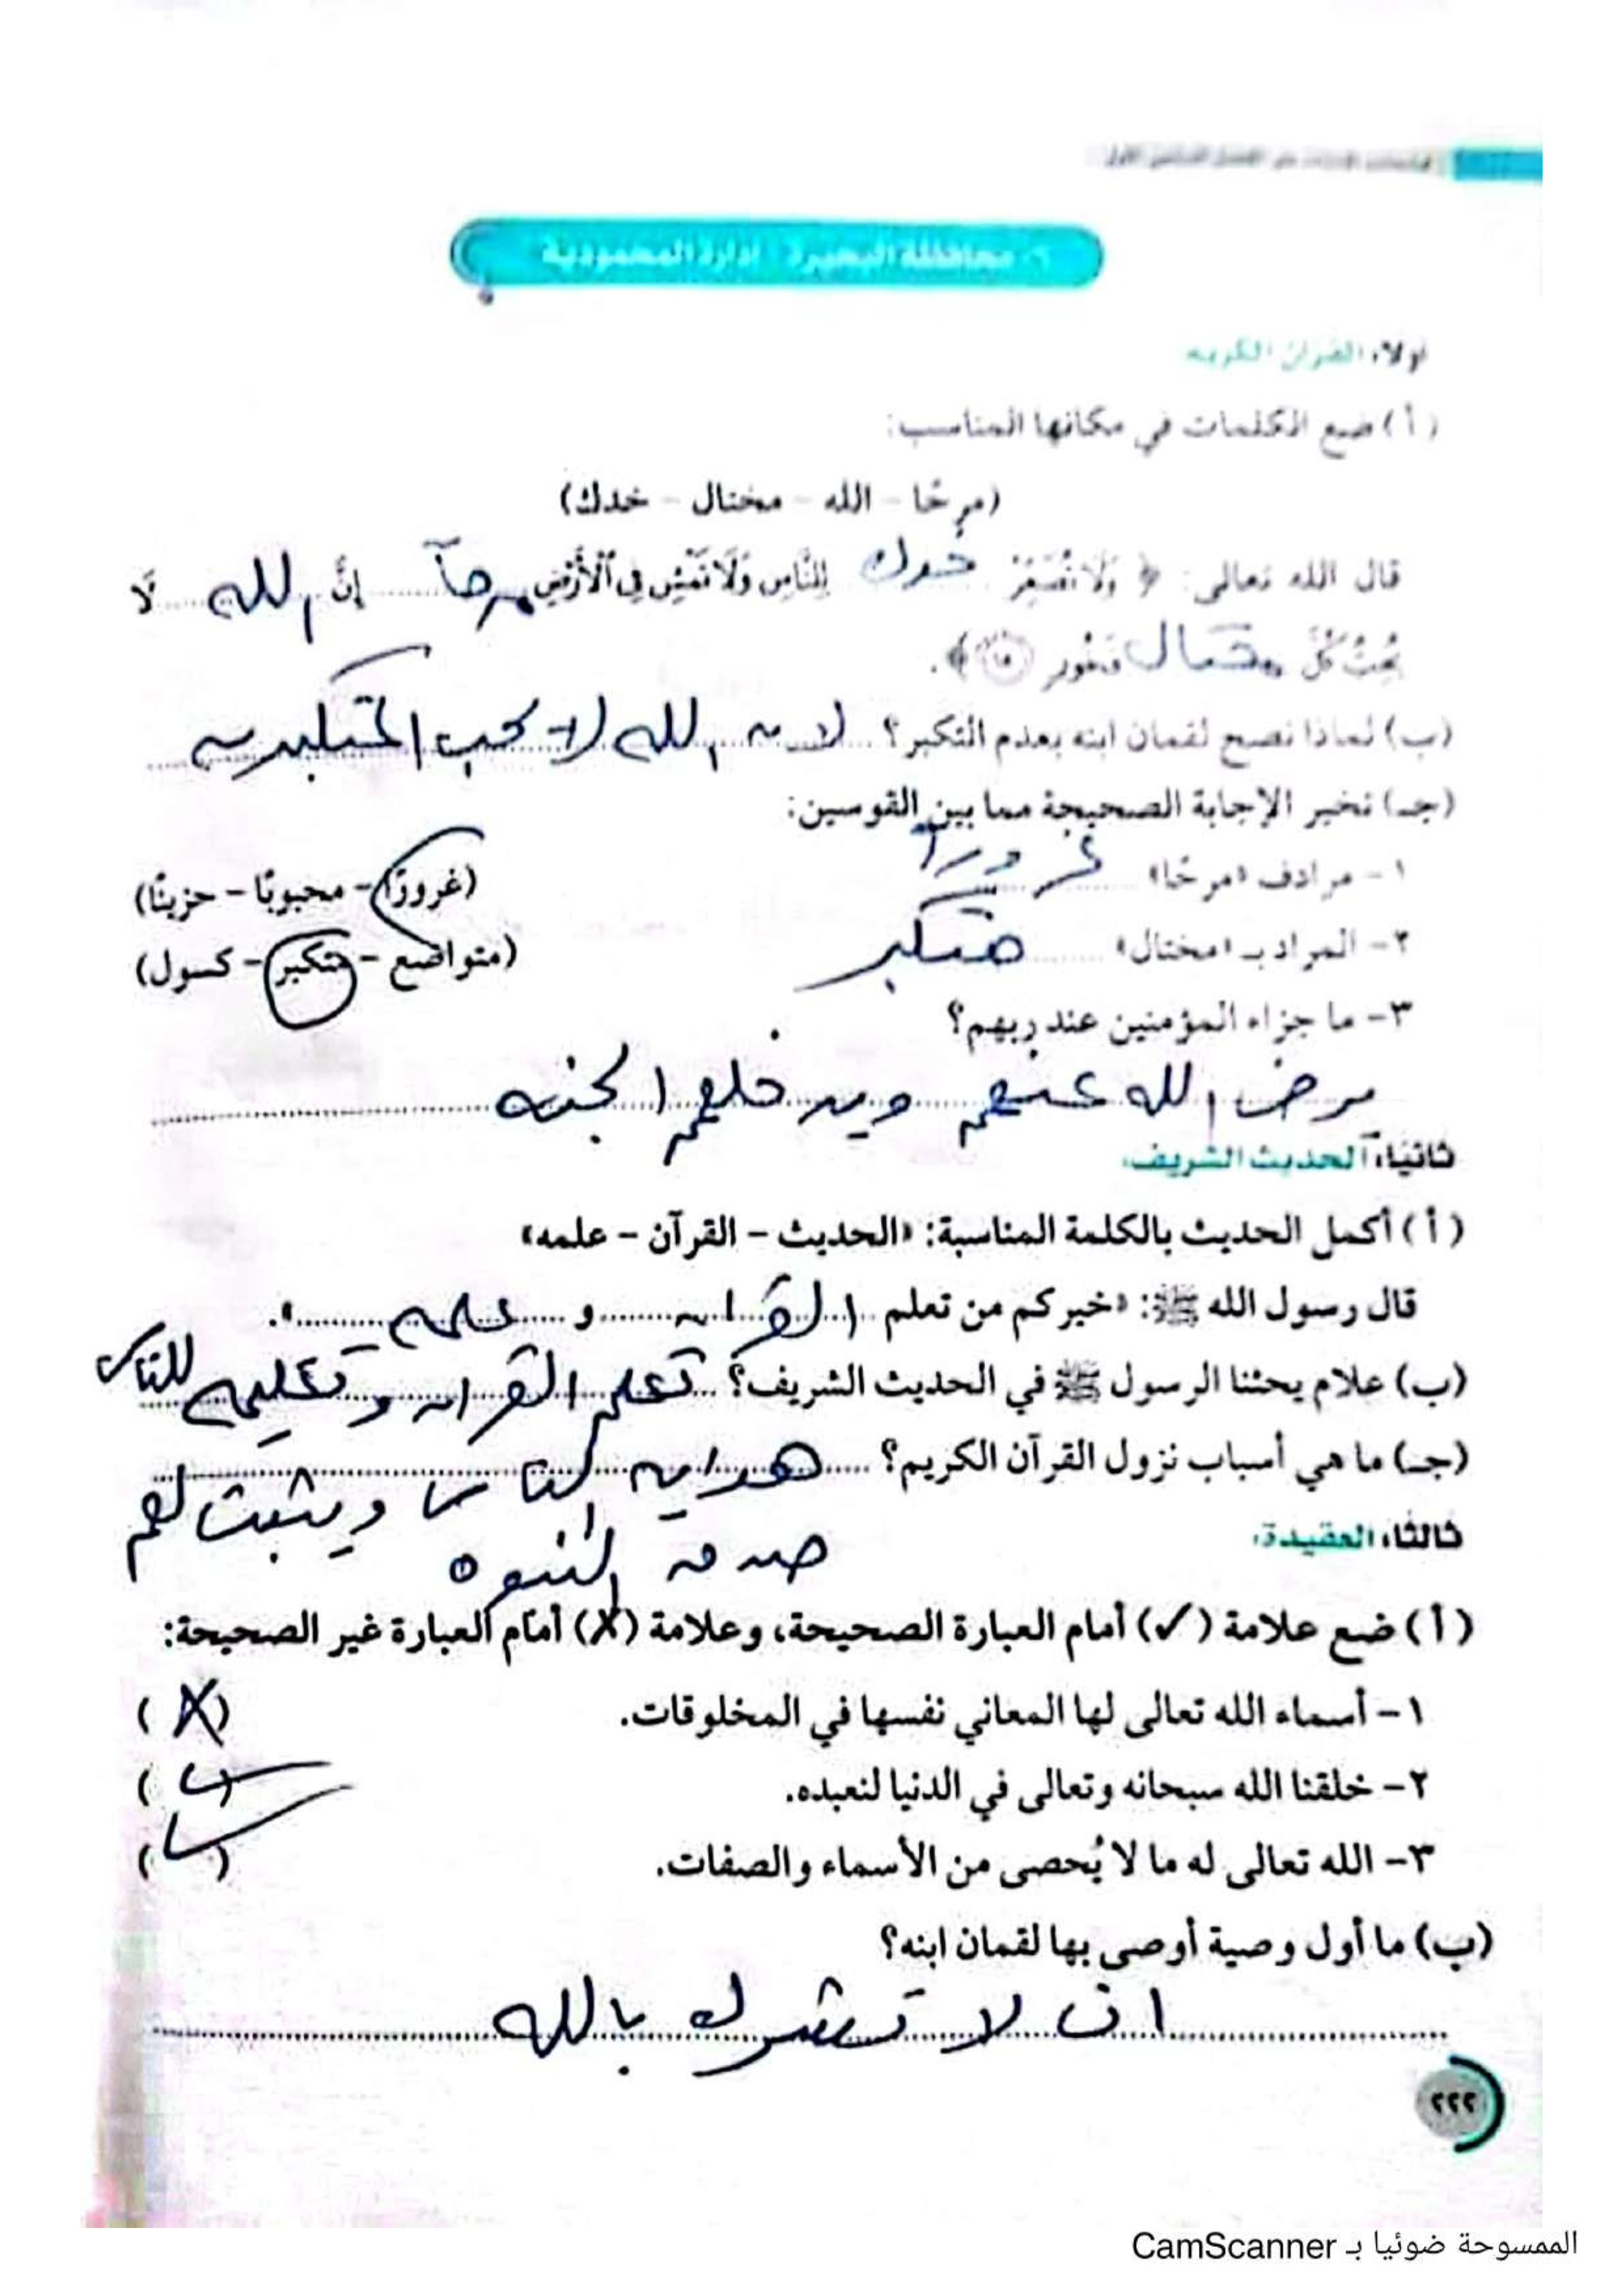 ٦- محافظة البحيرة - إدارة المحمودية
أولا: القرآن الكريم
( أ ) ضع الكلمات في مكانها المناسب:
(مرحًا - الله - مختال - خدك)
قال الله تعالى: ﴿ وَلَا تُصَعِّرْ خدك لِلنَّاسِ وَلَا تَمْشِ فِي ٱلْأَرْضِ مرحاً إِنَّ الله لَا
يُحِبُّ كُلَّ مختال فَخُورٍ ١٨ ﴾.
(ب) لماذا نصح لقمان ابنه بعدم التكبر؟ لان الله لا يحب المتكبرين
(جـ) تخير الإجابة الصحيحة مما بين القوسين:
١ - مرادف «مرحًا» غرورا (غرورًا - محبوبًا - حزينًا)
٢- المراد بـ «مختال» متكبر (متواضع - متكبر - كسول)
٣- ما جزاء المؤمنين عند ربهم؟
يرض الله عنهم ويدخلهم الجنه
ثانيًا: الحديث الشريف:
( أ ) أكمل الحديث بالكلمة المناسبة: «الحديث - القرآن - علمه»
قال رسول الله ﷺ: «خيركم من تعلم القران و علمه».
(ب) علام يحثنا الرسول ﷺ في الحديث الشريف؟ تعلم القران وتعليمه للناس
(جـ) ما هي أسباب نزول القرآن الكريم؟ هدايه الناس ويثبت لهم
صدق النبوه
ثالثًا: العقيدة:
( أ ) ضع علامة (✓) أمام العبارة الصحيحة، وعلامة (X) أمام العبارة غير الصحيحة:
١ - أسماء الله تعالى لها المعاني نفسها في المخلوقات. (X)
٢- خلقنا الله سبحانه وتعالى في الدنيا لنعبده. (✓)
٣- الله تعالى له ما لا يُحصى من الأسماء والصفات. (✓)
(ب) ما أول وصية أوصى بها لقمان ابنه؟
ان لا تشرك بالله
٢٢٢
الممسوحة ضوئيا بـ CamScanner